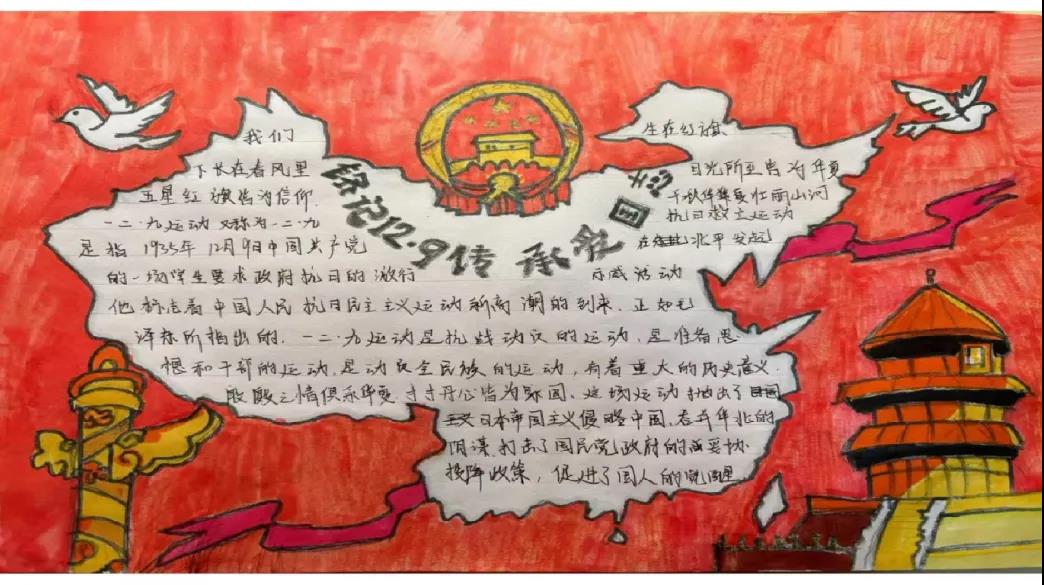 铭记12.9传承爱国志
我们 生在红旗
下长在春风里 目光所至皆为华夏
五星红旗皆为信仰 千秋华夏壮丽山河
一二·九运动又称为一二·九 抗日救亡运动
是指1935年12月9日中国共产党 在北平发起
的一场学生要求政府抗日的游行 示威活动
他标志着中国人民抗日民主主义运动新高潮的到来,正如毛
泽东所指出的,一二·九运动是抗战动员的运动,是准备思
想和干部的运动,是动员全民族的运动,有着重大的历史意义.
殷殷之情俱系华夏寸寸丹心皆为家国、这场运动抛出了
日本帝国主义侵略中国,吞并华北的
阴谋,打击了国民党政府的妥协
投降政策,促进了国人的觉醒.